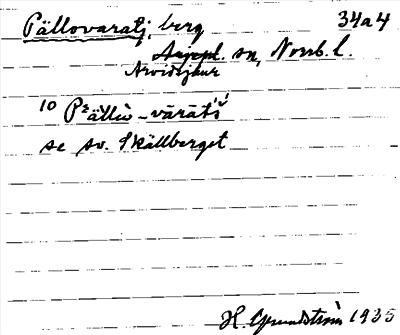 Pällovaratj, berg 34a4
Arjepl. sn, Norrb. l.
Arvidsjaur
10 Pällū-vārāt́ś
se sv. Skällberget
H. Grundström 1935